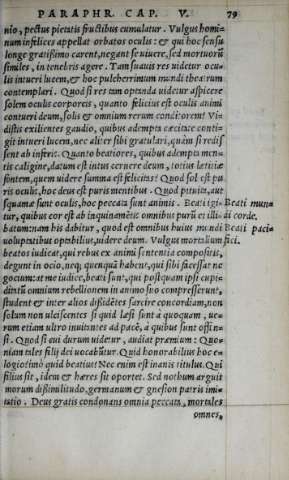 PARAPHR. CAP. V. 79
nio, pectus pietatis fructibus cumulatur. Vulgus homi-
num infelices appellat orbatos oculis: & qui hoc sensu
longe gratissimo carent, negant se uiuere, sed mortuorũ
similes, in tenebris agere. Tam suauis res uidetur ocu-
lis intueri lucem, & hoc pulcherrimum mundi theatrum
contemplari. Quod si res tam optanda uidetur aspicere
solem oculis corporeis, quanto felicius est oculis animi
contueri deum, solis & omnium rerum conditorem? Vi-
distis exilientes gaudio, quibus adempta cæcitate conti-
git intueri lucem, nec aliter sibi gratulari, quàm si redis
sent ab inferis. Quanto beatiores, quibus adempta men-
tis caligine, datum est intus cernere deum, totius letitiæ
fontem, quem uidere summa est felicitas? Quod sol est pu
ris oculis, hoc deus est puris mentibus. Quod pituita, aut
squamæ sunt oculis, hoc peccata sunt animis. Beati igi-
Beati mun
tur, quibus cor est ab inquinamẽtis omnibus purũ et illi-
di corde.
batum: nam his dabitur, quod est omnibus huius mundi
Beati paci
uoluptatibus optabilius, uidere deum. Vulgus mortalium
fici.
beatos iudicat, qui rebus ex animi sententia compositis,
degunt in ocio, neq; quenquã habent, qui sibi facessat ne
gocium: at me iudice, beati sunt, qui postquam ipsi cupi-
ditatũ omnium rebellionem in animo suo compresserunt,
student & inter alios dissidẽtes sarcire concordiam, non
solum non ulciscentes si quid læsi sunt à quoquam, ue-
rum etiam ultro inuitantes ad pacẽ, à quibus sunt offen-
si. Quod si cui durum uidetur, audiat præmium: Quo-
niam tales filij dei uocabũtur. Quid honorabilius hoc e-
logio? imò quid beatius? Nec enim est inanis titulus. Qui
filius sit, idem & hæres sit oportet. Sed nothum arguit
morum dissimilitudo, germanum & gnesion patris imi-
tatio. Deus gratis condonans omnia peccata, mortales
omnes,